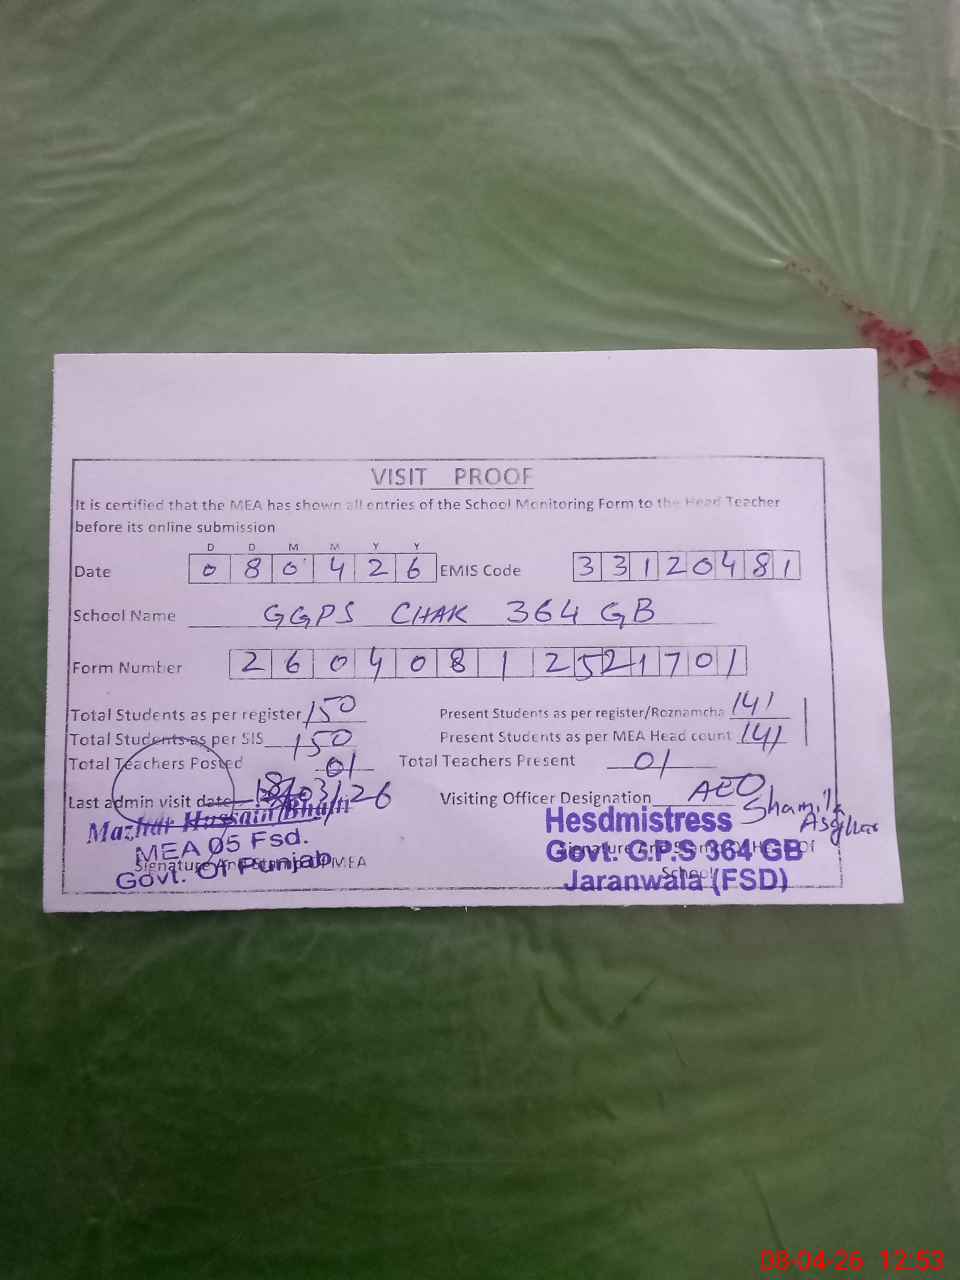 VISIT PROOF
It is certified that the MEA has shown all entries of the School Monitoring Form to the Head Teacher
before its online submission
D D M M Y Y
Date 0 8 0 4 2 6 EMIS Code 3 3 1 2 0 4 8 1
School Name GGPS CHAK 364 GB
Form Number 2 6 0 4 0 8 1 2 5 2 1 7 0 1
Total Students as per register 150 Present Students as per register/Roznamcha 141
Total Students as per SIS 150 Present Students as per MEA Head count 141
Total Teachers Posted 01 Total Teachers Present 01
Last admin visit date 18/03/26 Visiting Officer Designation AEO
Shamila
Asghar
Mazhar Hussain Bhatti
MEA 05 Fsd.
Govt. Of Punjab
Signature And Stamp Of MEA
Hesdmistress
Govt. G.P.S 364 GB
Jaranwala (FSD)
Signature And Of
School
08-04-26 12:53